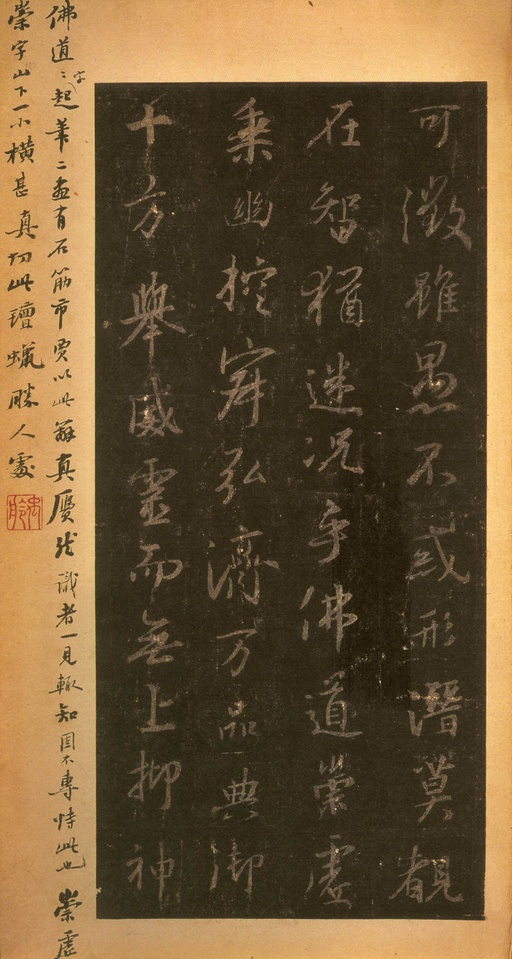 可徵雖愚不惑形潛莫覩
在智猶迷况乎佛道崇虛
乘幽控寂弘濟万品典御
十方舉威靈而無上抑神
佛道〻字起筆二畫有石筋市賈以此辨真贗然識者一見輒知固不專恃此也崇虛
崇字山下一小橫甚真切此氊蠟勝人處